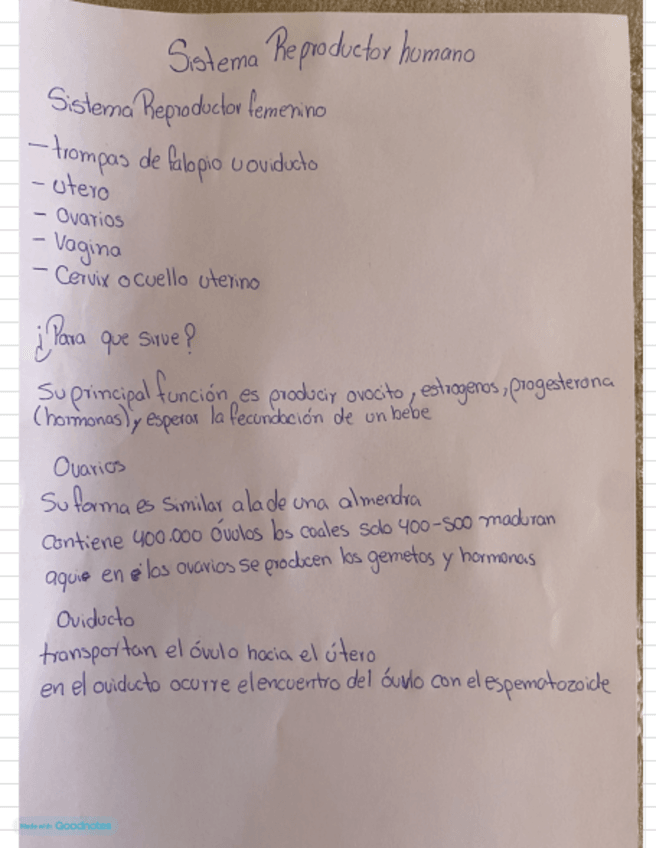 Sistema Reproductor humano
Sistema Reproductor femenino
- trompas de falopio u oviducto
- utero
- Ovarios
- Vagina
- Cervix o cuello uterino
¿Para que sirve?
Su principal función es producir ovocito, estrogenos, progesterona
(hormonas) y esperar la fecundación de un bebe
Ovarios
Su forma es similar a la de una almendra
Contiene 400.000 óvulos los cuales solo 400-500 maduran
aqui en los ovarios se producen los gemetos y hormonas
Oviducto
transportan el óvulo hacia el útero
en el oviducto ocurre el encuentro del óuvlo con el espematozoide
Made with Goodnotes